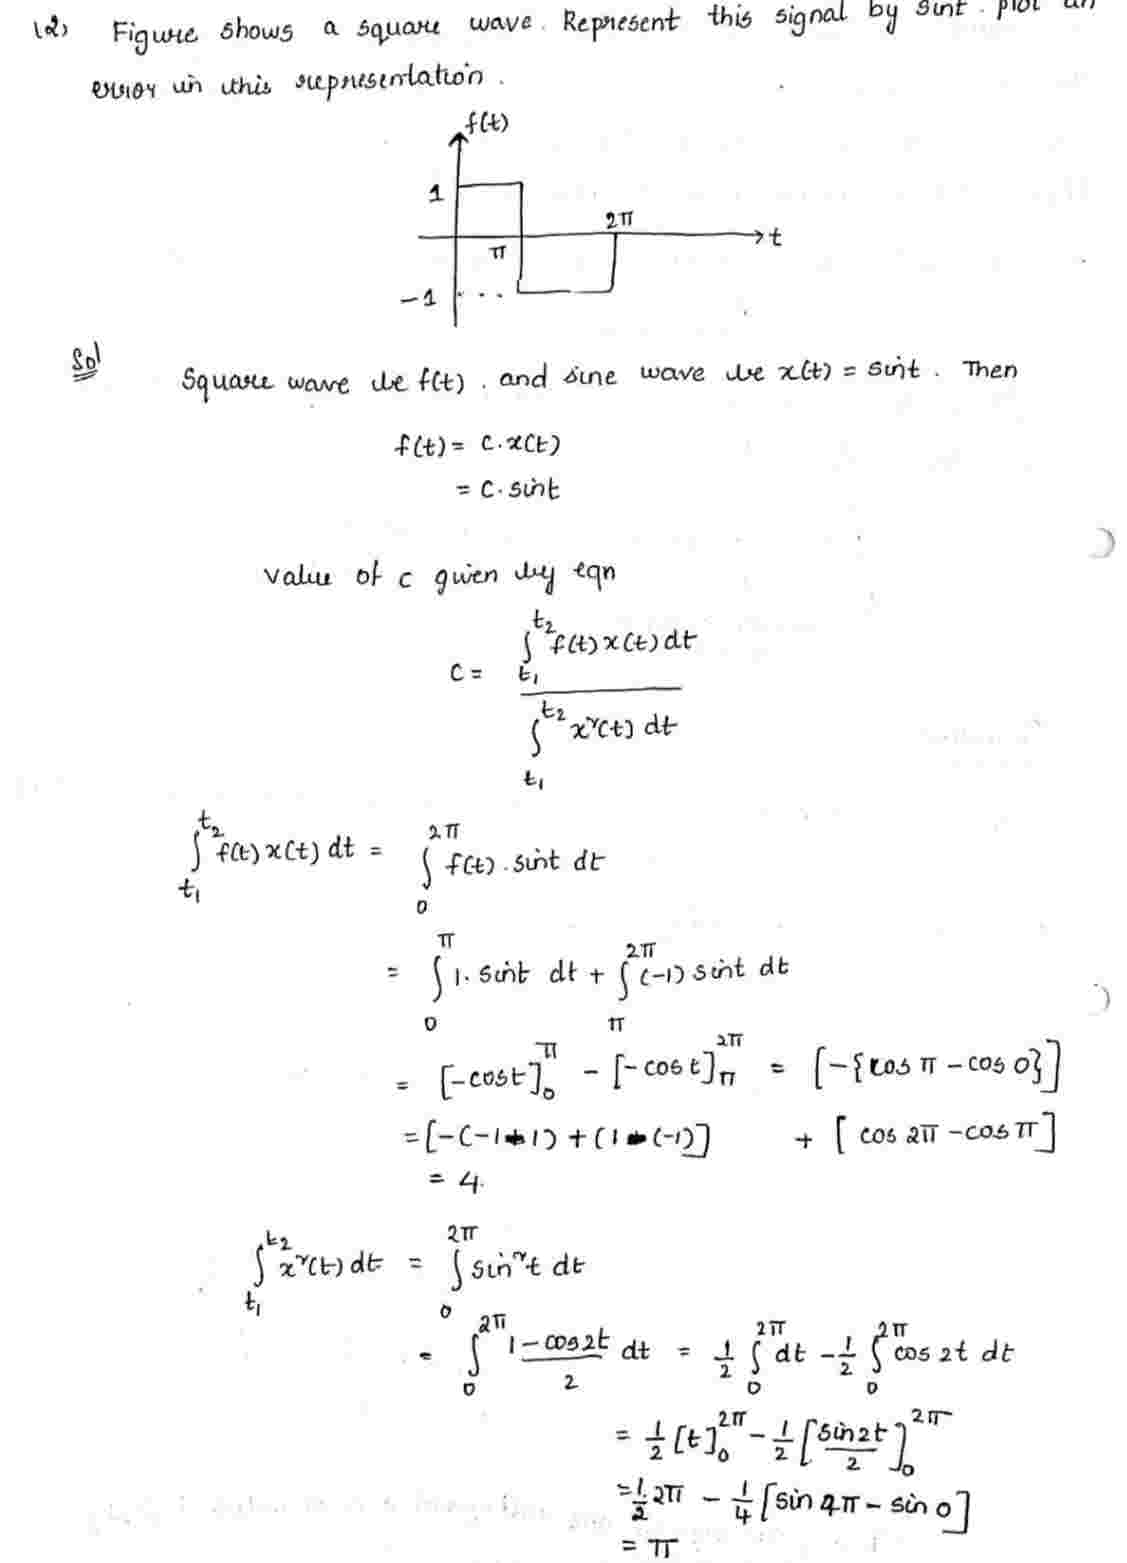 (2) Figure shows a square wave. Represent this signal by sint. plot an
error in this representation.
f(t)
1
2π
t
π
-1
Sol
Square wave be f(t), and sine wave be x(t) = sint. Then
f(t) = C.x(t)
= C.sint
value of c given by eqn
C = ∫_{t₁}^{t₂} f(t) x(t) dt / ∫_{t₁}^{t₂} x²(t) dt
∫_{t₁}^{t₂} f(t) x(t) dt = ∫_0^{2π} f(t).sint dt
= ∫_0^π 1.sint dt + ∫_π^{2π} (-1) sint dt
= [-cost]_0^π - [-cost]_π^{2π} = [-{cos π - cos 0}]
+ [cos 2π - cos π]
= [-(-1-1) + (1-(-1)]
= 4.
∫_{t₁}^{t₂} x²(t) dt = ∫_0^{2π} sin²t dt
= ∫_0^{2π} (1-cos2t)/2 dt = 1/2 ∫_0^{2π} dt - 1/2 ∫_0^{2π} cos 2t dt
= 1/2 [t]_0^{2π} - 1/2 [sin2t/2]_0^{2π}
= 1/2.2π - 1/4 [sin 4π - sin 0]
= π